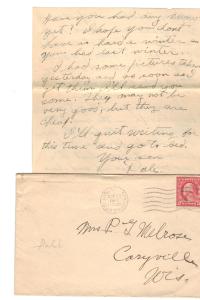 Have you had any snow
yet? I hope you don't
have as hard a winter as
you had last winter.
I had some pictures taken
yesterday and as soon as I
get them I'll send you
some. They may not be
very good, but they are
cheap.
I'll quit writing for
this time and go to bed.
Your son
Dale
Mrs P. G. Melrose
Caryville
Wis.